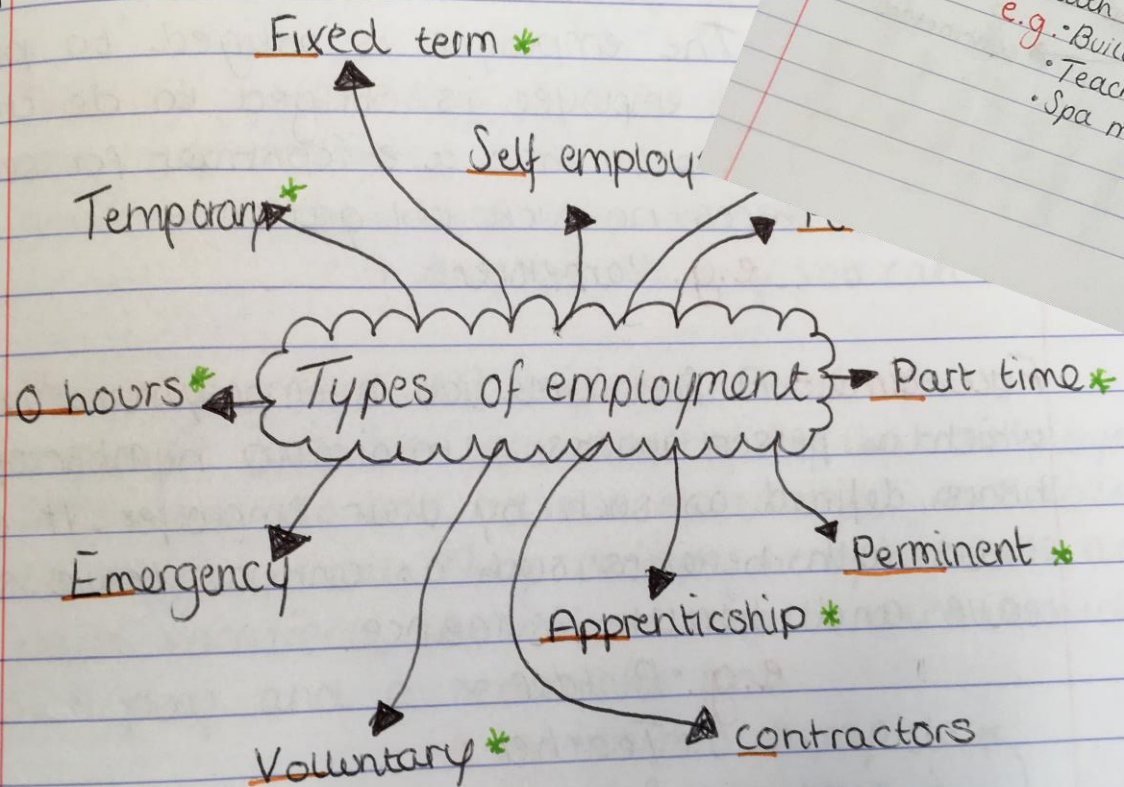 Fixed term *
e.g.
• Spa
Self employ
Temporary *
0 hours *
Types of employment
Part time *
Emergency
Perminent *
Apprenticship *
Voluntary *
contractors